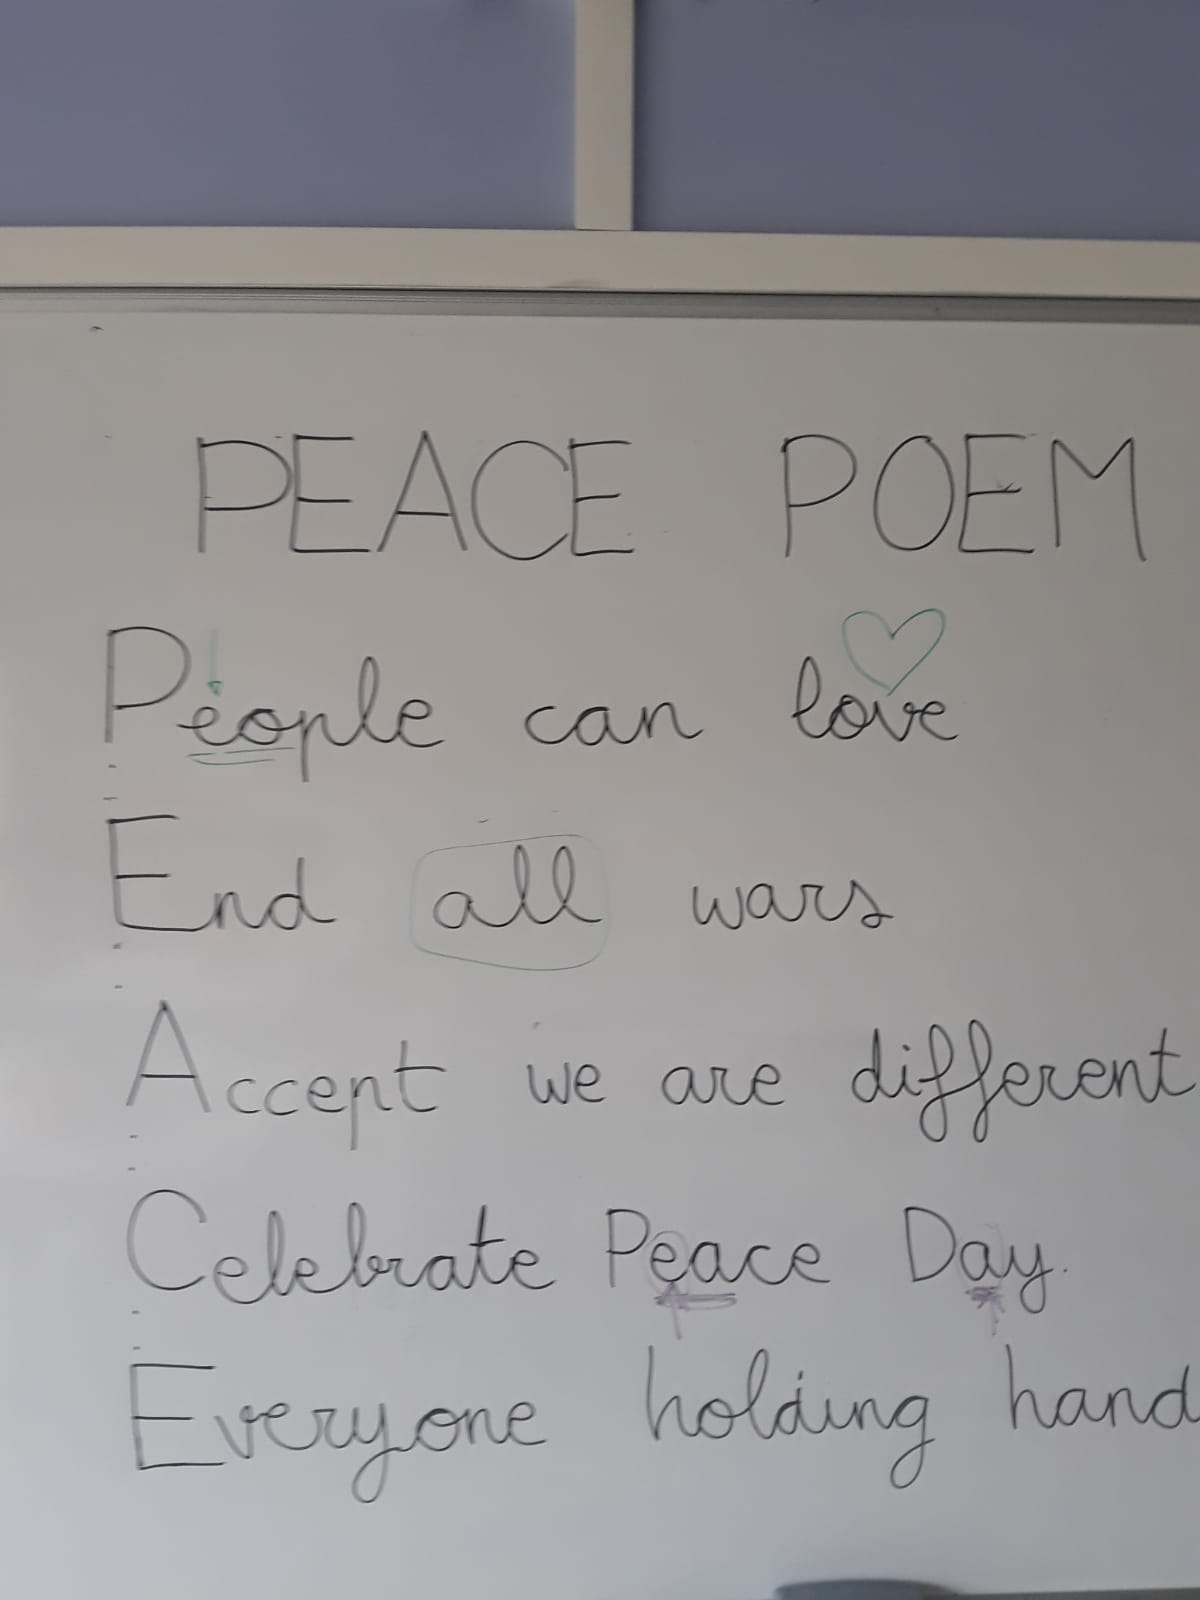 PEACE POEM
People can love
End all wars
Accept we are different
Celebrate Peace Day.
Everyone holding hand